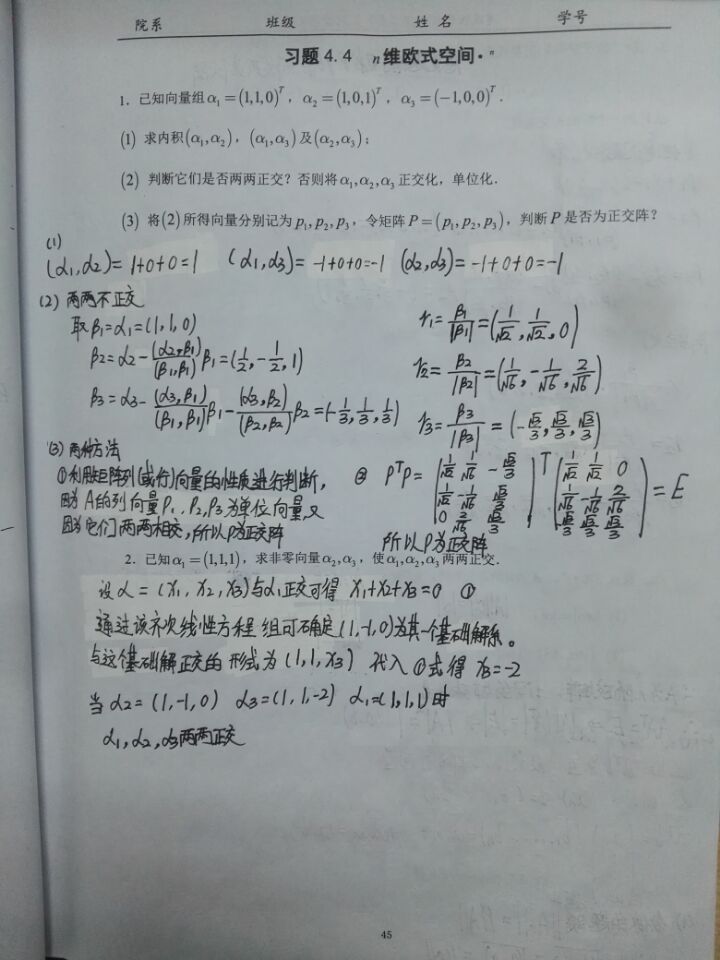 院系 班级 姓 名 学号
习题 4.4 n维欧式空间·ⁿ
1. 已知向量组α₁=(1,1,0)ᵀ, α₂=(1,0,1)ᵀ, α₃=(-1,0,0)ᵀ.
(1) 求内积(α₁,α₂), (α₁,α₃)及(α₂,α₃);
(2) 判断它们是否两两正交?否则将α₁,α₂,α₃正交化,单位化.
(3) 将(2)所得向量分别记为p₁,p₂,p₃,令矩阵P=(p₁,p₂,p₃),判断P是否为正交阵?
(1)
(α₁,α₂)=1+0+0=1 (α₁,α₃)=-1+0+0=-1 (α₂,α₃)=-1+0+0=-1
(2) 两两不正交
取β₁=α₁=(1,1,0) r₁=β₁/|β₁|=(1/√2,1/√2,0)
β₂=α₂-(α₂,β₁)/(β₁,β₁)β₁=(1/2,-1/2,1) r₂=β₂/|β₂|=(1/√6,-1/√6,2/√6)
β₃=α₃-(α₃,β₁)/(β₁,β₁)β₁-(α₃,β₂)/(β₂,β₂)β₂=(-1/3,1/3,1/3) r₃=β₃/|β₃|=(-√3/3,√3/3,√3/3)
(3) 两种方法
①利用矩阵列(或行)向量的性质进行判断,
因为A的列向量P₁,P₂,P₃为单位向量,又
因为它们两两相交,所以P为正交阵
② PᵀP=
1/√2 1/√6 -√3/3 T 1/√2 1/√2 0
1/√2 -1/√6 √3/3 1/√6 -1/√6 2/√6 =E
0 2/√6 √3/3 √3/3 √3/3 √3/3
所以P为正交阵
2. 已知α₁=(1,1,1),求非零向量α₂,α₃,使α₁,α₂,α₃两两正交.
设α=(x₁,x₂,x₃)与α₁正交可得 x₁+x₂+x₃=0 ①
通过该齐次线性方程组可确定(1,-1,0)为其一个基础解系。
与这个基础解正交的形式为(1,1,x₃) 代入①式得x₃=-2
当α₂=(1,-1,0) α₃=(1,1,-2) α₁=(1,1,1)时
α₁,α₂,α₃两两正交
45